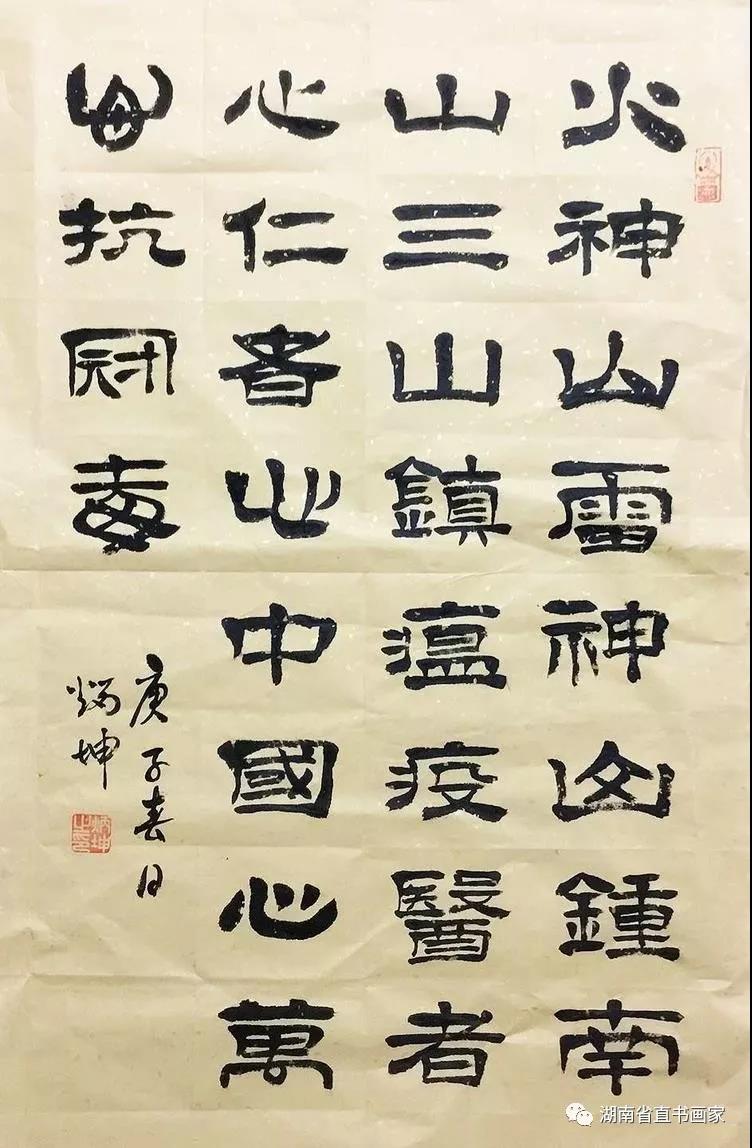 火神山雷神山鍾南
山三山鎮瘟疫醫者
心仁者心中國心萬
抗冠毒
庚子春日
炳坤
炳坤之印
湖南省直书画家